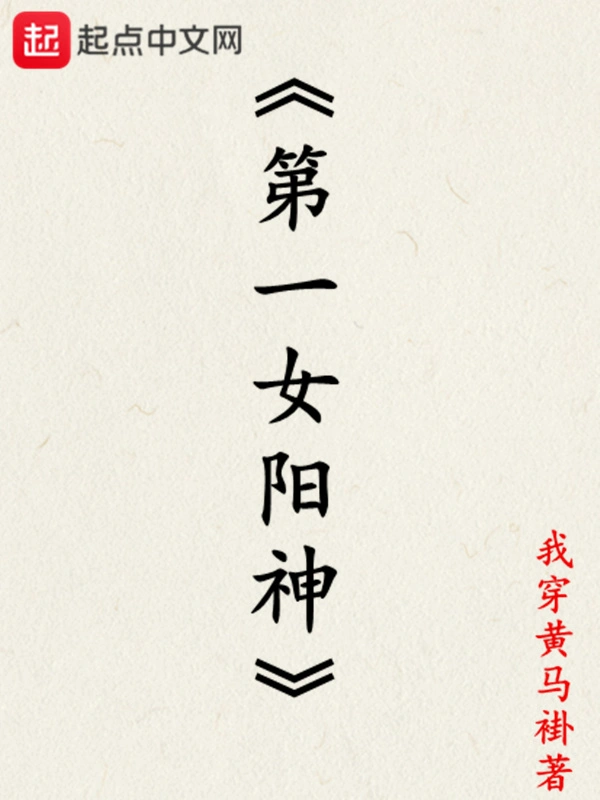 起 起点中文网
《第一女阳神》
我穿黄马褂著